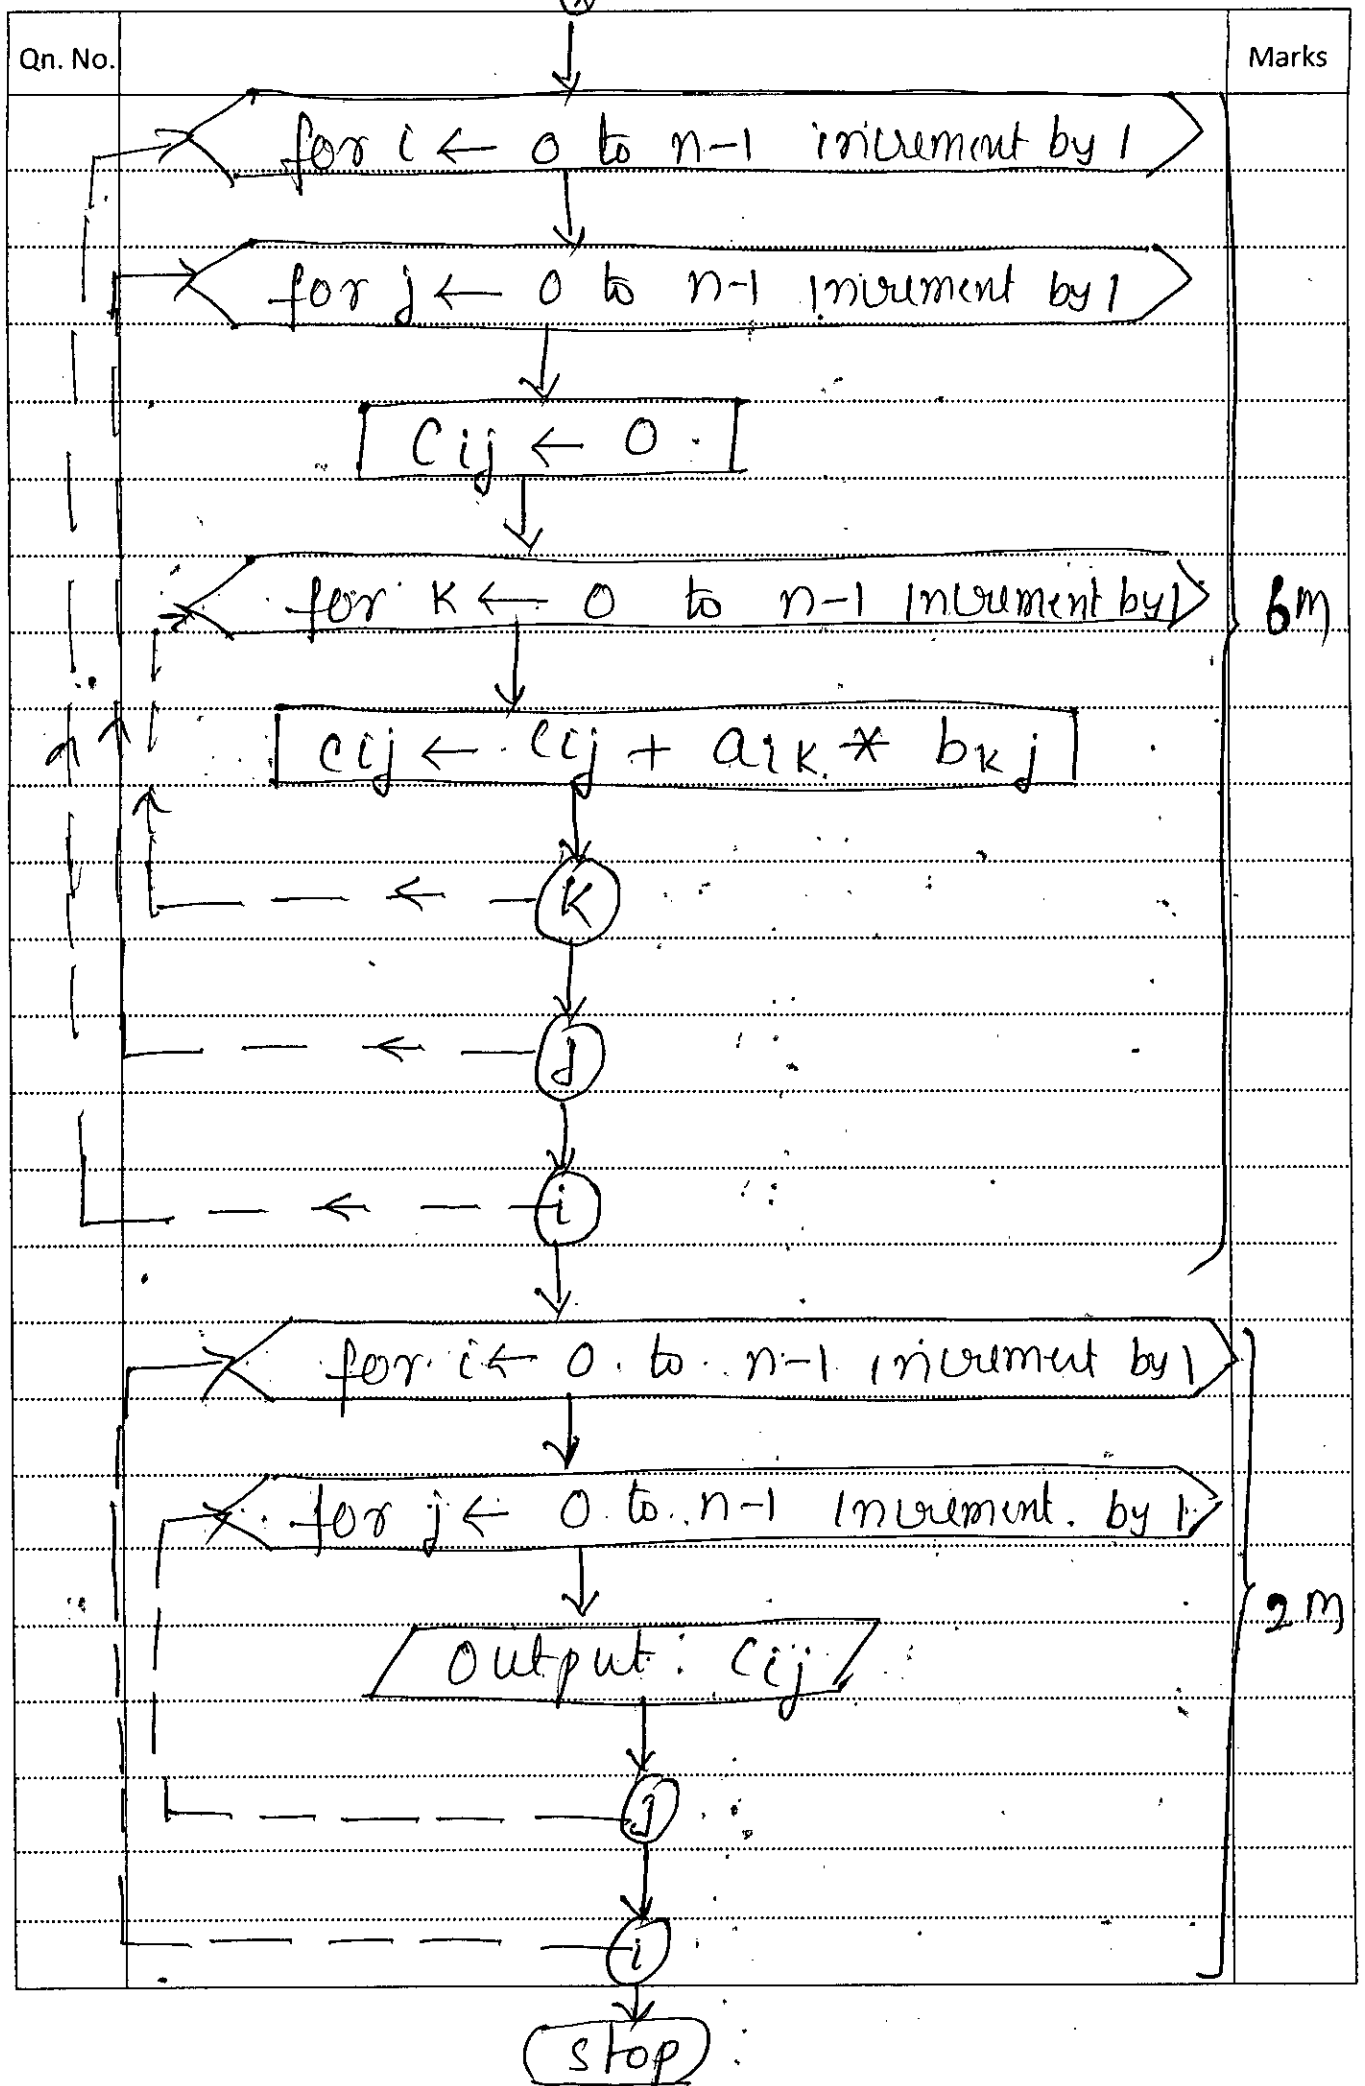 Qn. No. Marks
for i ← 0 to n-1 increment by 1
for j ← 0 to n-1 increment by 1
Cij ← 0
for K ← 0 to n-1 Increment by 1
6M
cij ← cij + aik * bkj
K
j
i
for i ← 0 to n-1 increment by 1
for j ← 0 to n-1 Increment by 1
2M
Output: Cij
j
i
stop